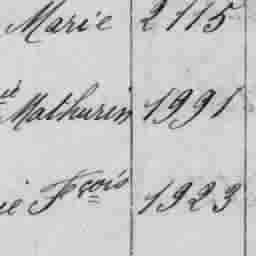 Marie 2115
Mathurin 1991
Fçois 1923